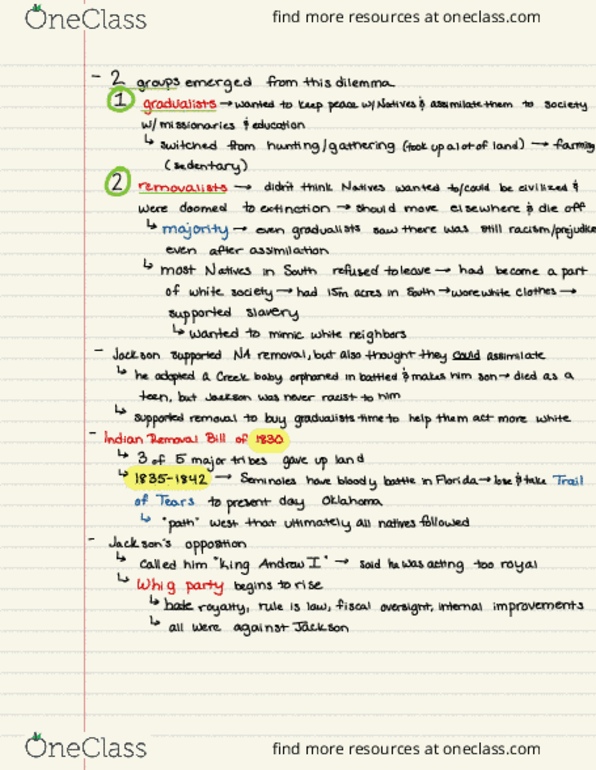 OneClass find more resources at oneclass.com
- 2 groups emerged from this dilemma
1 gradualists → wanted to keep peace w/Natives & assimilate them to society
w/ missionaries & education
↳ switched from hunting/gathering (took up a lot of land) → farming
(sedentary)
2 removalists → didn't think Natives wanted to/could be civilized &
were doomed to extinction → should move elsewhere & die off
↳ majority → even gradualists saw there was still racism/prejudice
even after assimilation
↳ most Natives in South refused to leave → had become a part
of white society → had 15m acres in South → wore white clothes →
supported slavery
↳ wanted to mimic white neighbors
- Jackson supported NA removal, but also thought they could assimilate
↳ he adopted a Creek baby orphaned in battled & makes him son → died as a
teen, but Jackson was never racist to him
↳ supported removal to buy gradualists time to help them act more white
- Indian Removal Bill of 1830
↳ 3 of 5 major tribes gave up land
↳ 1835-1842 → Seminoles have bloody battle in Florida → lose & take Trail
of Tears to present day Oklahoma
↳ "path" west that ultimately all natives followed
- Jackson's opposition
↳ called him "King Andrew I" → said he was acting too royal
↳ Whig party begins to rise
↳ hate royalty, rule is law, fiscal oversight, internal improvements
↳ all were against Jackson
OneClass find more resources at oneclass.com